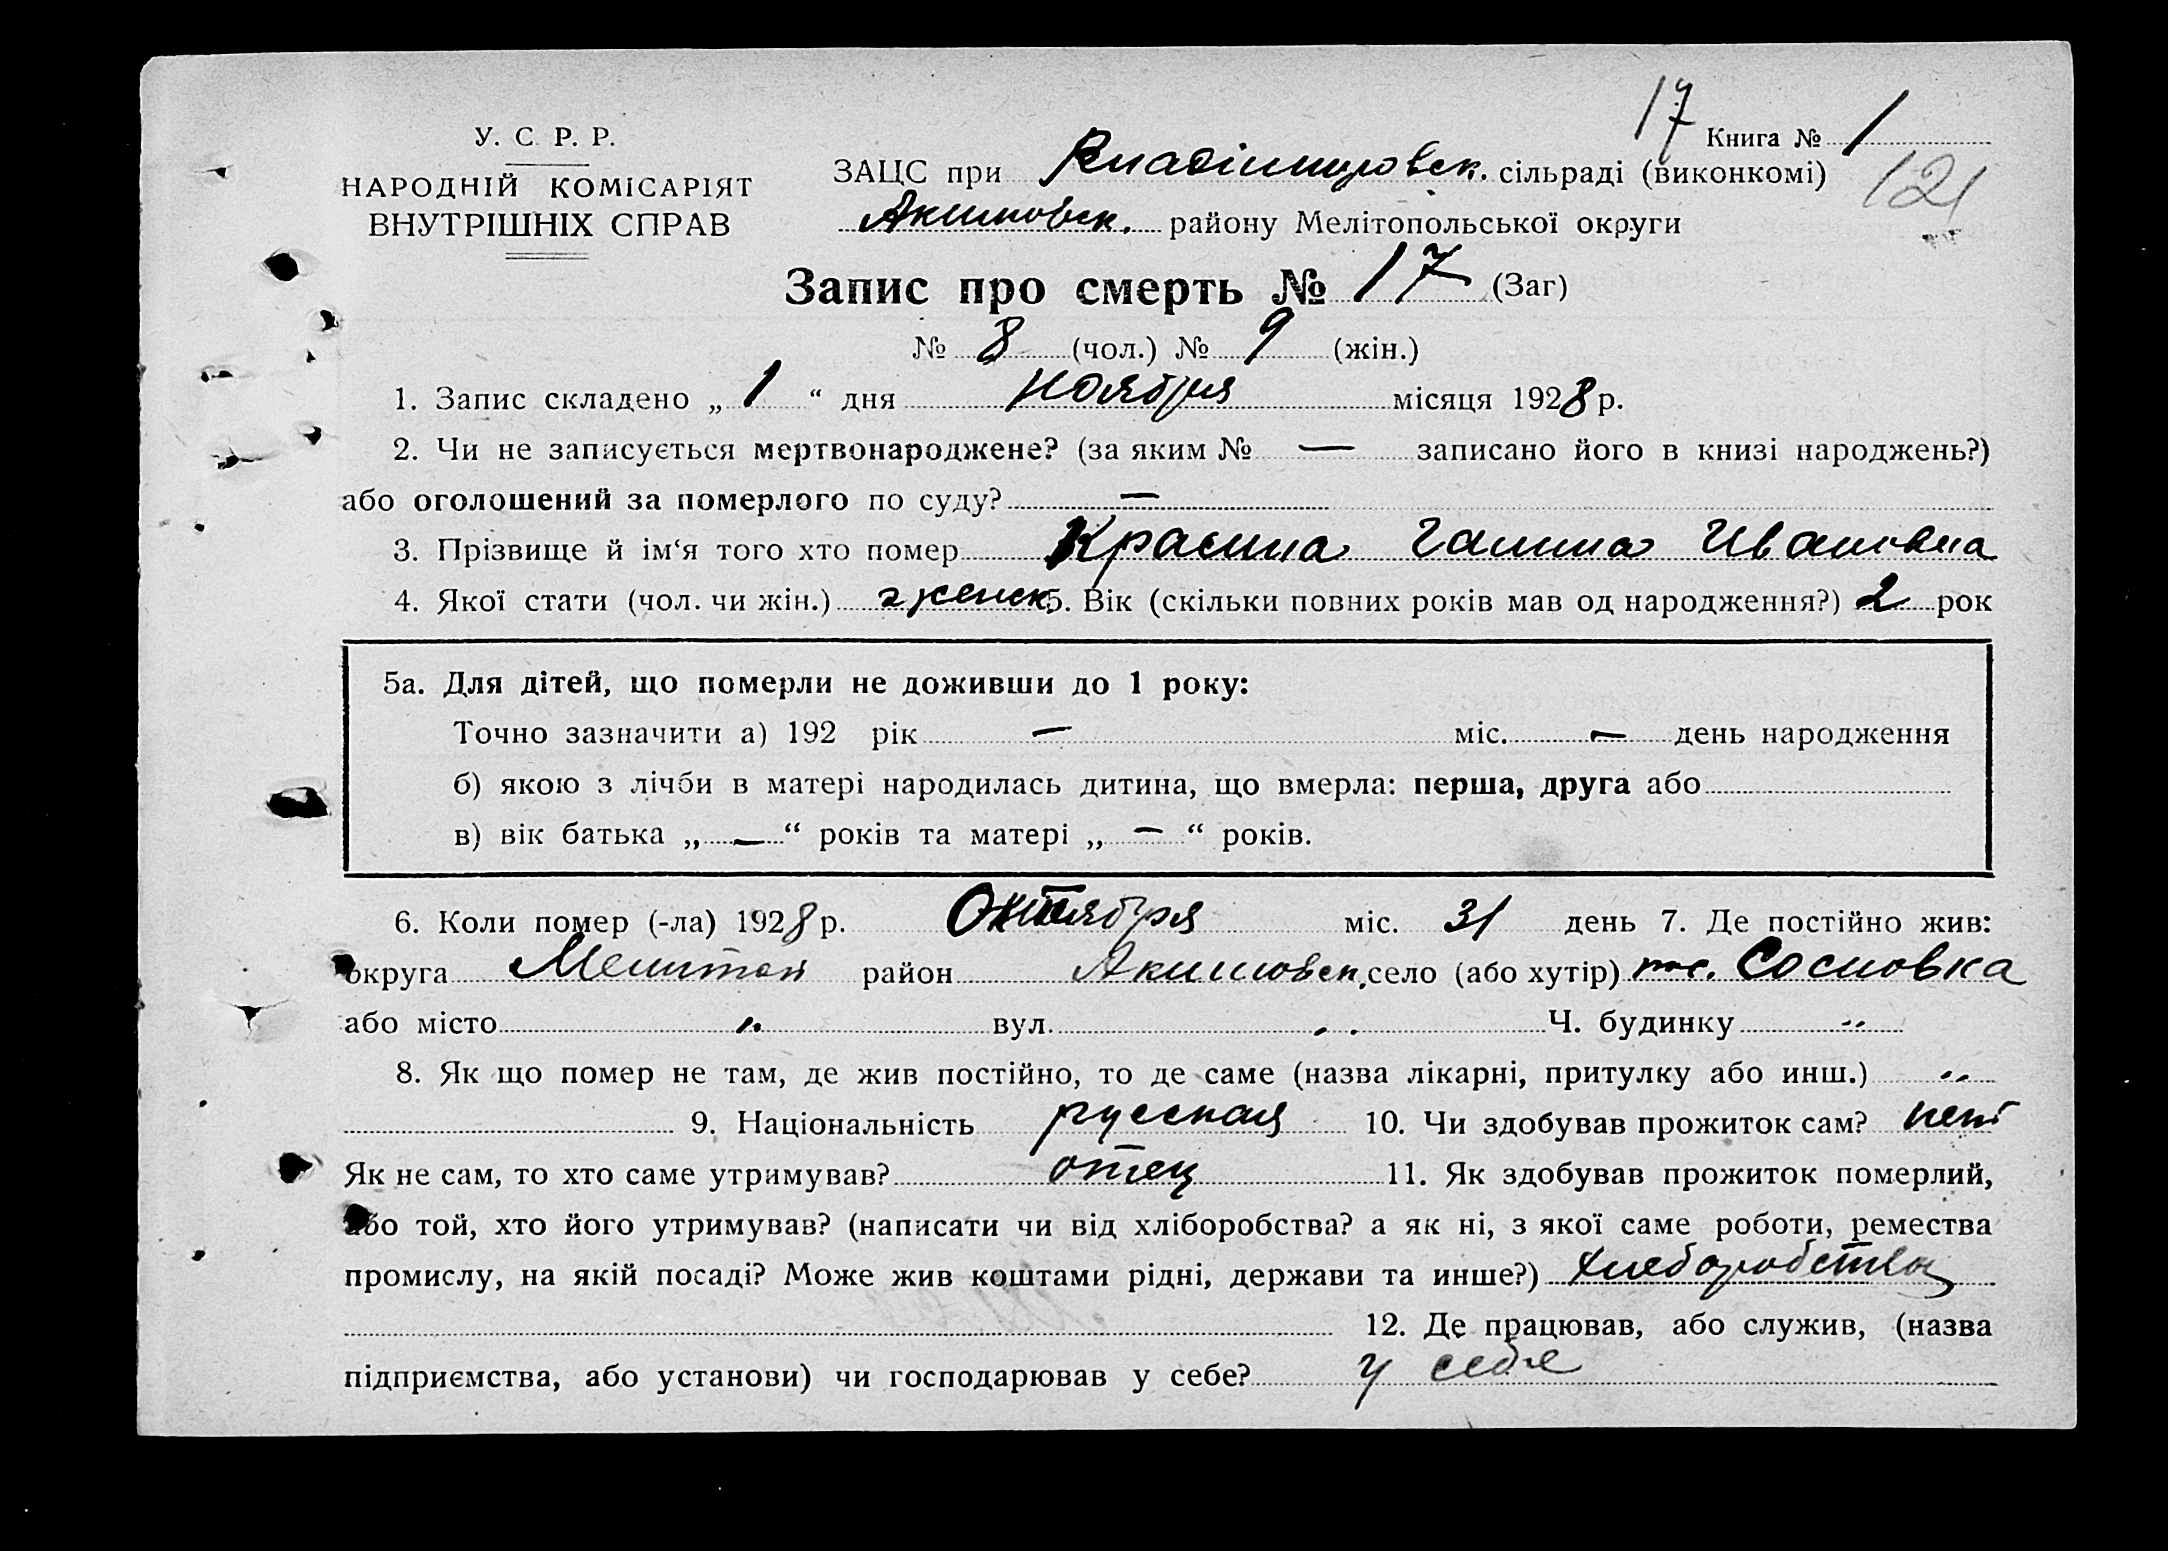 17 Книга № 1
У. С. Р. Р.
НАРОДНІЙ КОМІСАРІЯТ
ВНУТРІШНІХ СПРАВ
ЗАЦС при Владімировск. сільраді (виконкомі)
121
Акимовск. району Мелітопольської округи
Запис про смерть № 17 (Заг)
№ 8 (чол.) № 9 (жін.)
1. Запис складено „ 1 “ дня ноября місяця 1928 р.
2. Чи не записується мертвонароджене? (за яким № — записано його в книзі народжень?)
або оголошений за померлого по суду? —
3. Прізвище й ім‘я того хто помер Красина Галина Ивановна
4. Якої стати (чол. чи жін.) женск. 5. Вік (скільки повних років мав од народження?) 2 рок
5а. Для дітей, що померли не доживши до 1 року:
Точно зазначити а) 192 рік — міс. — день народження
б) якою з лічби в матері народилась дитина, що вмерла: перша, друга або
в) вік батька „ — “ років та матері „ — “ років.
6. Коли помер (-ла) 1928 р. Октября міс. 31 день 7. Де постійно жив:
округа Мелитоп район Акимовск. село (або хутір) пос. Сосновка
або місто „ вул. „ Ч. будинку „
8. Як що помер не там, де жив постійно, то де саме (назва лікарні, притулку або инш.) „
9. Національність русская 10. Чи здобував прожиток сам? нет
Як не сам, то хто саме утримував? отец 11. Як здобував прожиток померлий,
або той, хто його утримував? (написати чи від хліборобства? а як ні, з якої саме роботи, ремества
промислу, на якій посаді? Може жив коштами рідні, держави та инше?) хлеборобства
12. Де працював, або служив, (назва
підприємства, або установи) чи господарював у себе? у себе